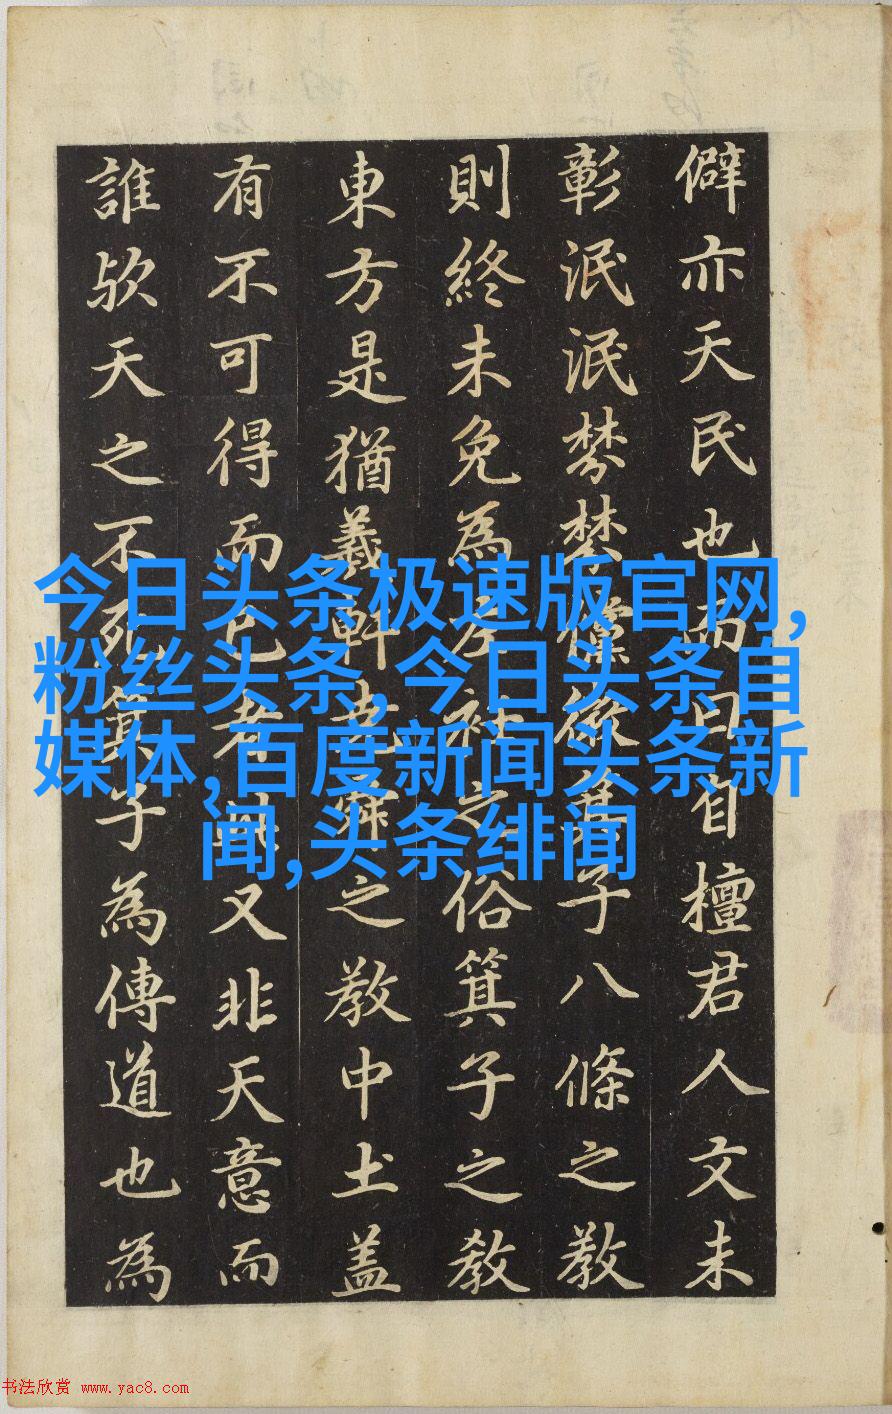 僻亦天民也而曰自檀君人文未
彰泯泯棼棼儻微箕子八條之教
則終未免為左衽之俗箕子之教
東方是猶羲軒堯舜之教中土盖
有不可得而已者此又非天意而
誰欤天之不死箕子為傳道也為
今日头条极速版官网,
粉丝头条,今日头条自
媒体,百度新闻头条新
闻,头条绯闻
书法欣赏 www.yac8.com